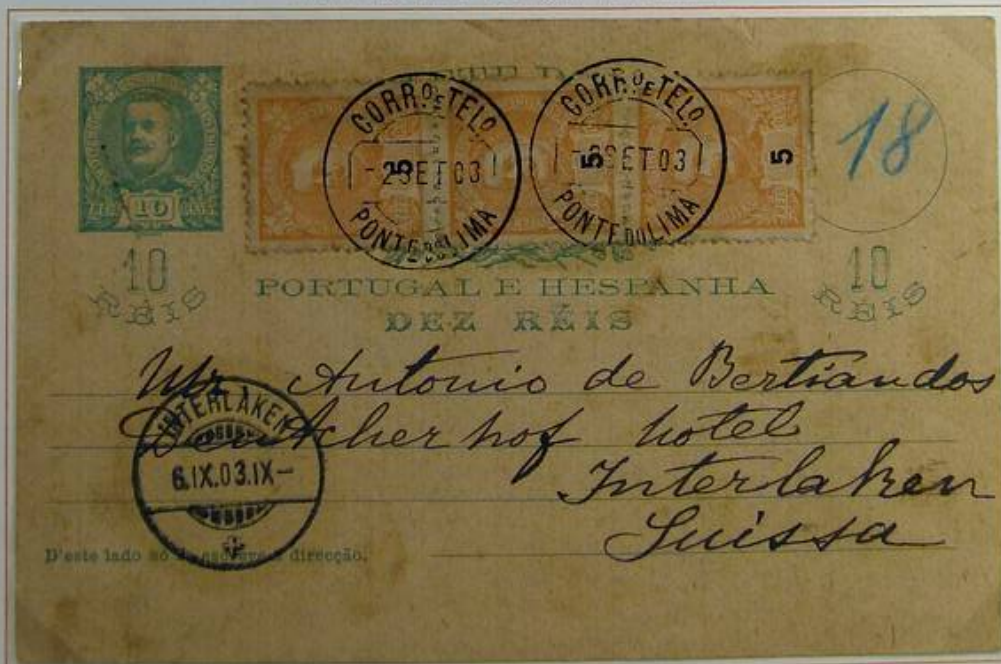 10
5
5
5
CORRO E TELO
- 2 SET 03
PONTE DO LIMA
CORRO E TELO
- 2 SET 03
PONTE DO LIMA
18
10
RÉIS
PORTUGAL E HESPANHA
DEZ RÉIS
10
RÉIS
Mr Antonio de Bertiandos
hof hotel
Interlaken
Suissa
INTERLAKEN
6.IX.03.IX-
D'este lado só se escreve a direcção.